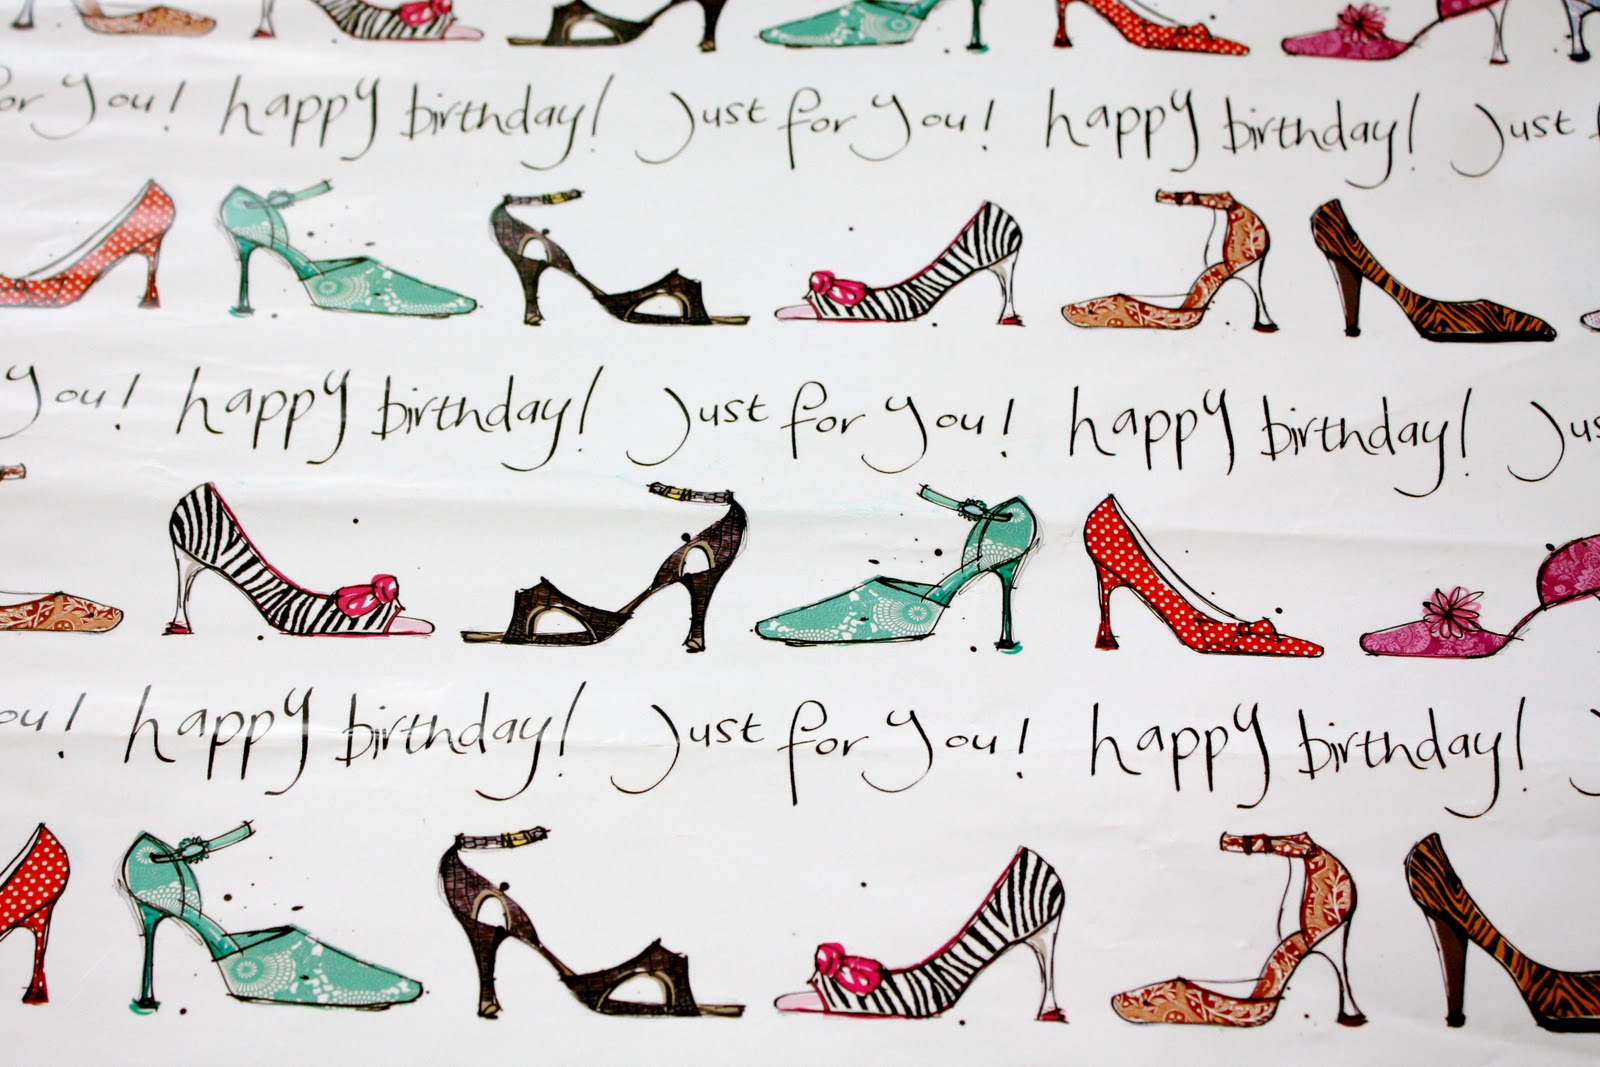 for you! happy birthday! just for you! happy birthday! just
you! happy birthday! just for you! happy birthday! jus
ou! happy birthday! just for you! happy birthday!